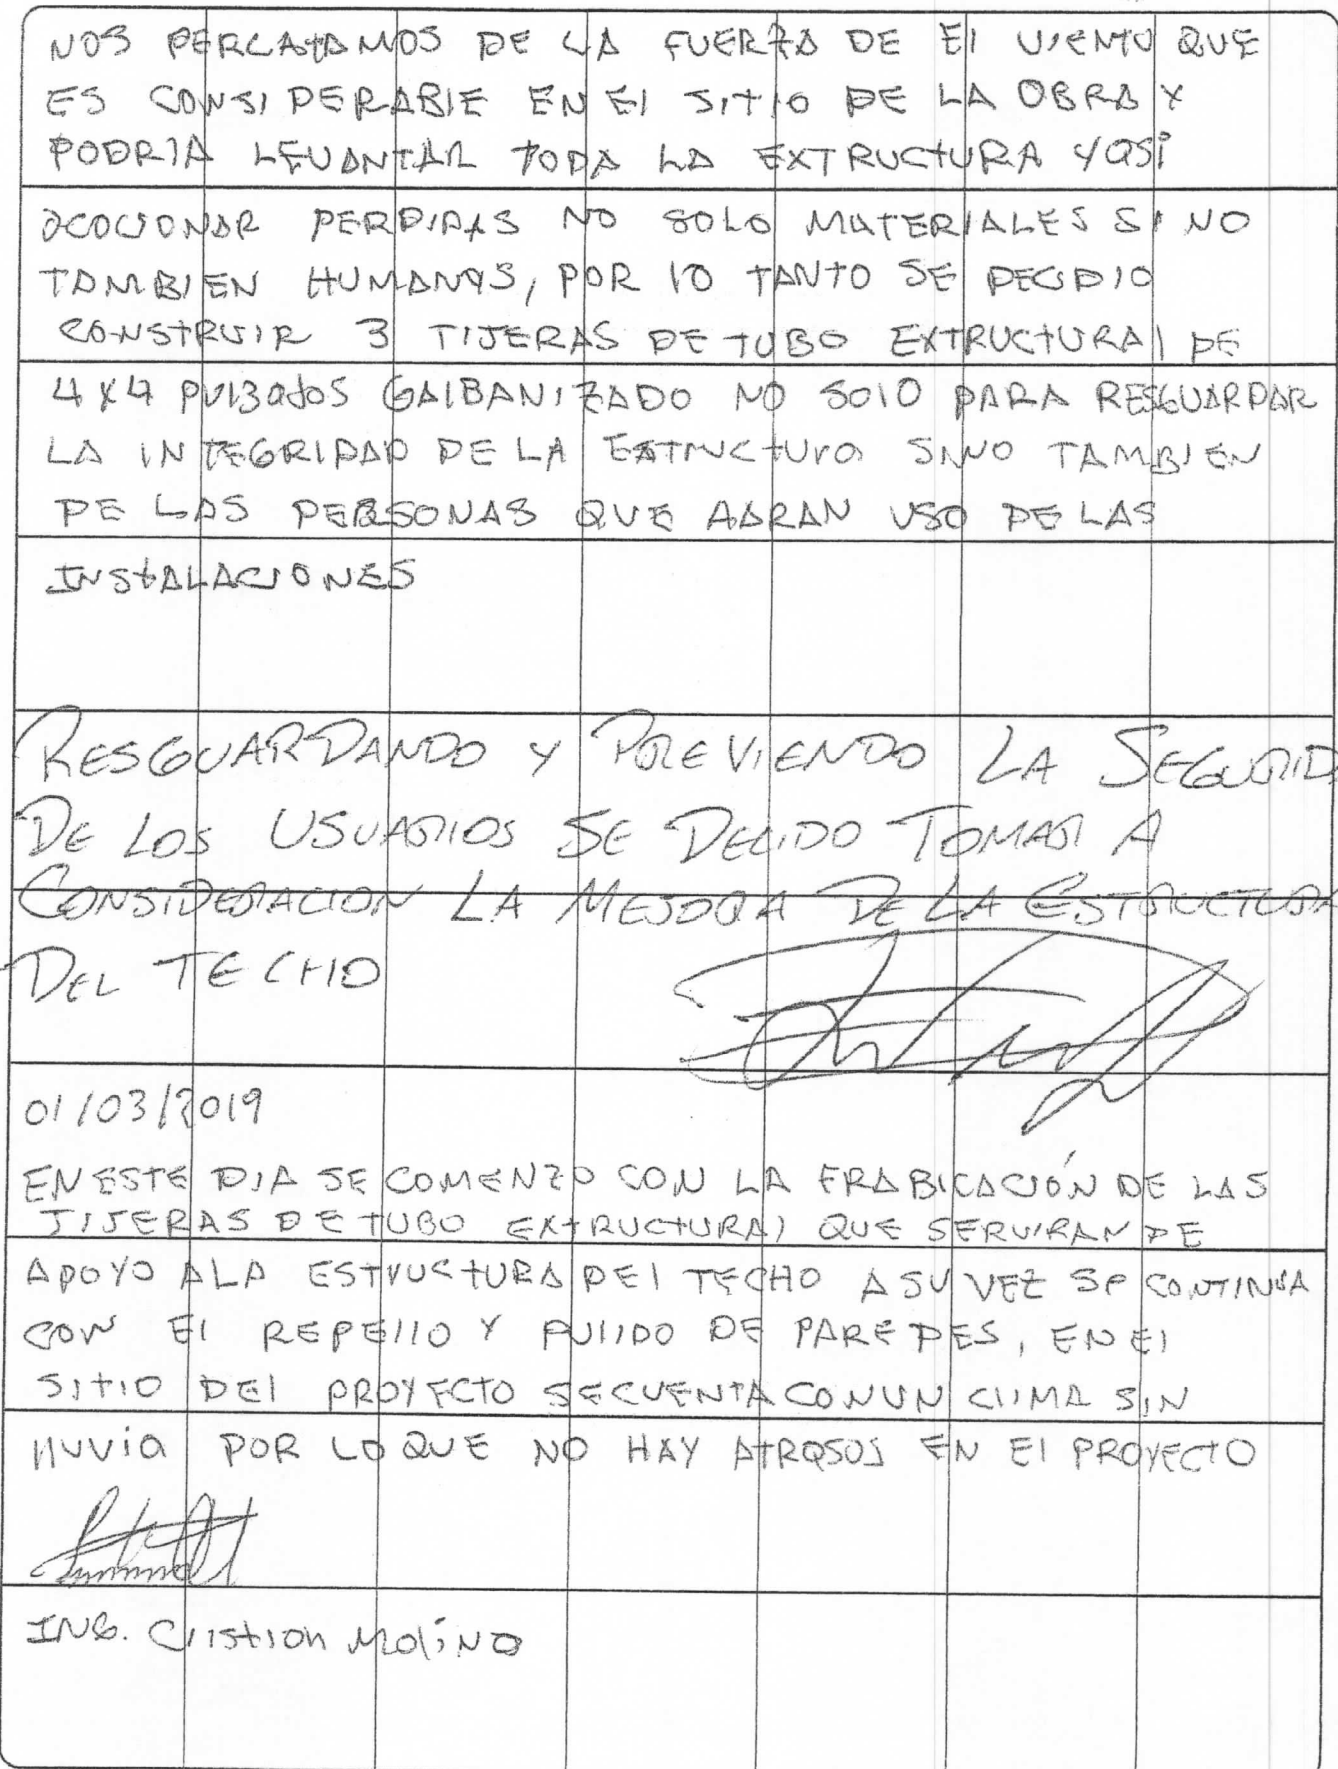 NOS PERCATAMOS DE LA FUERZA DE El VIENTO QUE
ES CONSIDERABlE EN El SITIO DE LA OBRA Y
PODRIA LEVANTAR TODA LA EXTRUCTURA Y ASi
OCOCIONAR PERDIDAS NO SOLO MATERIALES SI NO
TAMBIEN HUMANAS, POR lO TANTO SE DECIDIO
CONSTRUIR 3 TIJERAS DE TUBO EXTRUCTURAl DE
4 X 4 PUlgadas GAlBANIZADO NO SOlO PARA RESGUARDAR
LA INTEGRIDAD DE LA EstructUra SINO TAMBIEN
DE LAS PERSONAS QUE AARAN USO DE LAS
INSTALACIONES
RESGUARDANDO Y PREVIENDO LA SEGURID
DE LOS USUARIOS SE DECIDO TOMAR A
CONSIDERACION LA MEJORA DE LA ESTRUCTURA
DEL TECHO
01/03/2019
EN ESTE DIA SE COMENZO CON LA FRABICACIÓN DE LAS
TIJERAS DE TUBO EXTRUCTURAl QUE SERVIRAN DE
APOYO A LA ESTRUCTURA DEl TECHO A SU VEZ SE CONTINUA
CON El REPEllO Y PUlIDO DE PAREDES, EN El
SITIO DEl PROYECTO SE CUENTA CON UN ClIMA SIN
llUVia POR LO QUE NO HAY ATRASOS EN El PROYECTO
ING. Cristian Molina